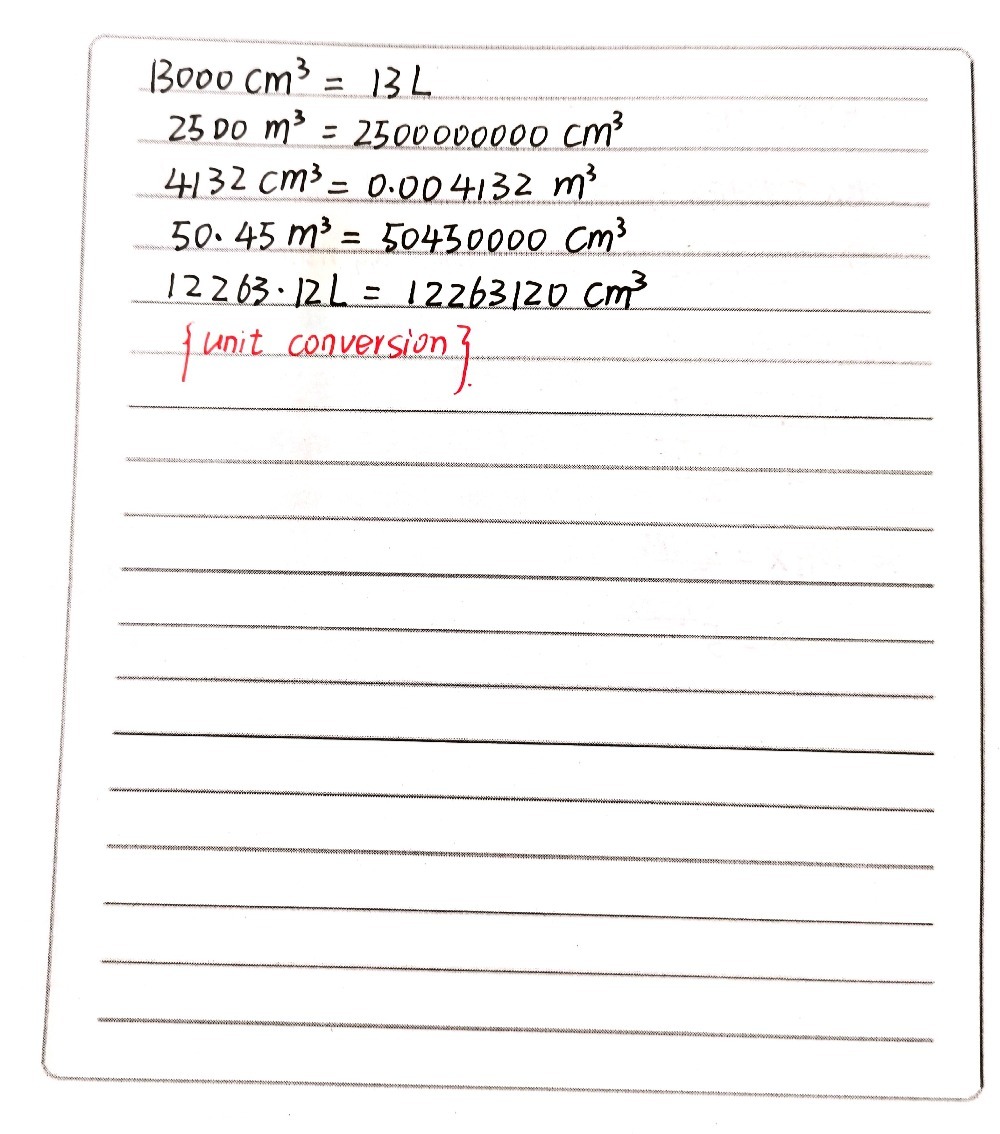 13000 cm³ = 13 L
2500 m³ = 2500000000 cm³
4132 cm³ = 0.004132 m³
50.45 m³ = 50450000 cm³
12263.12L = 12263120 cm³
{unit conversion}.